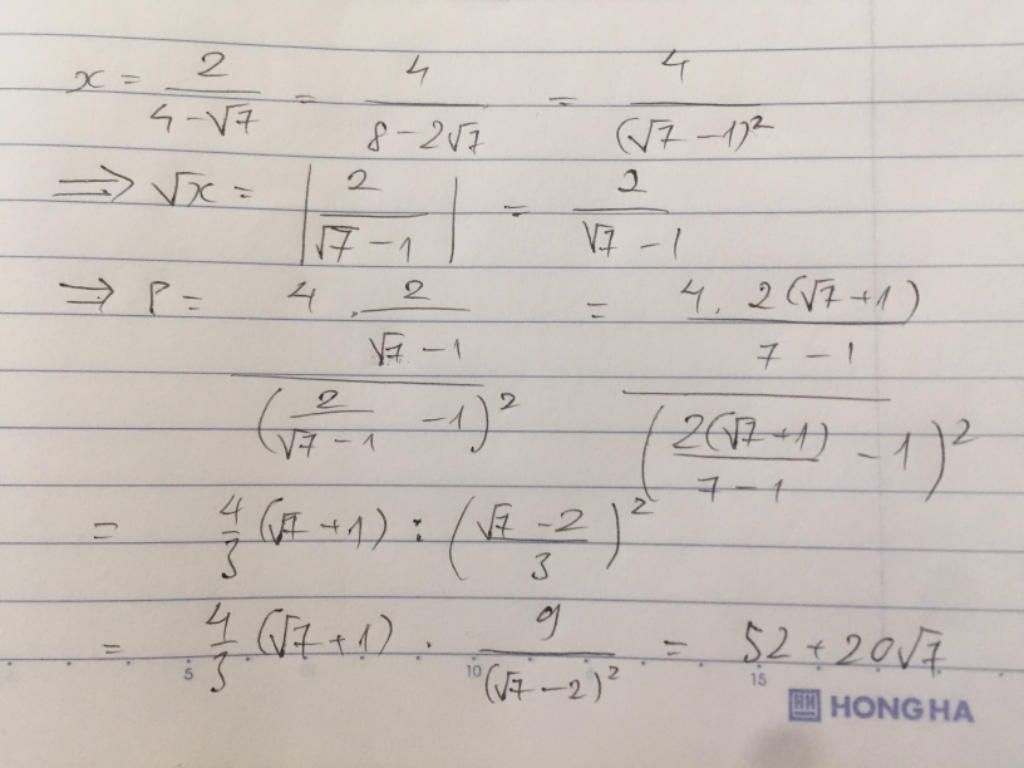 x = 2/(4 - √7) = 4/(8 - 2√7) = 4/(√7 - 1)²
⇒ √x = |2/(√7 - 1)| = 2/(√7 - 1)
⇒ P = (4 . 2/(√7 - 1))/(2/(√7 - 1) - 1)² = (4. 2(√7 + 1)/(7 - 1))/(2(√7 + 1)/(7 - 1) - 1)²
= 4/3 (√7 + 1) : ((√7 - 2)/3)²
= 4/3 (√7 + 1) . 9/(√7 - 2)² = 52 + 20√7
5 10 15
HH HONG HA